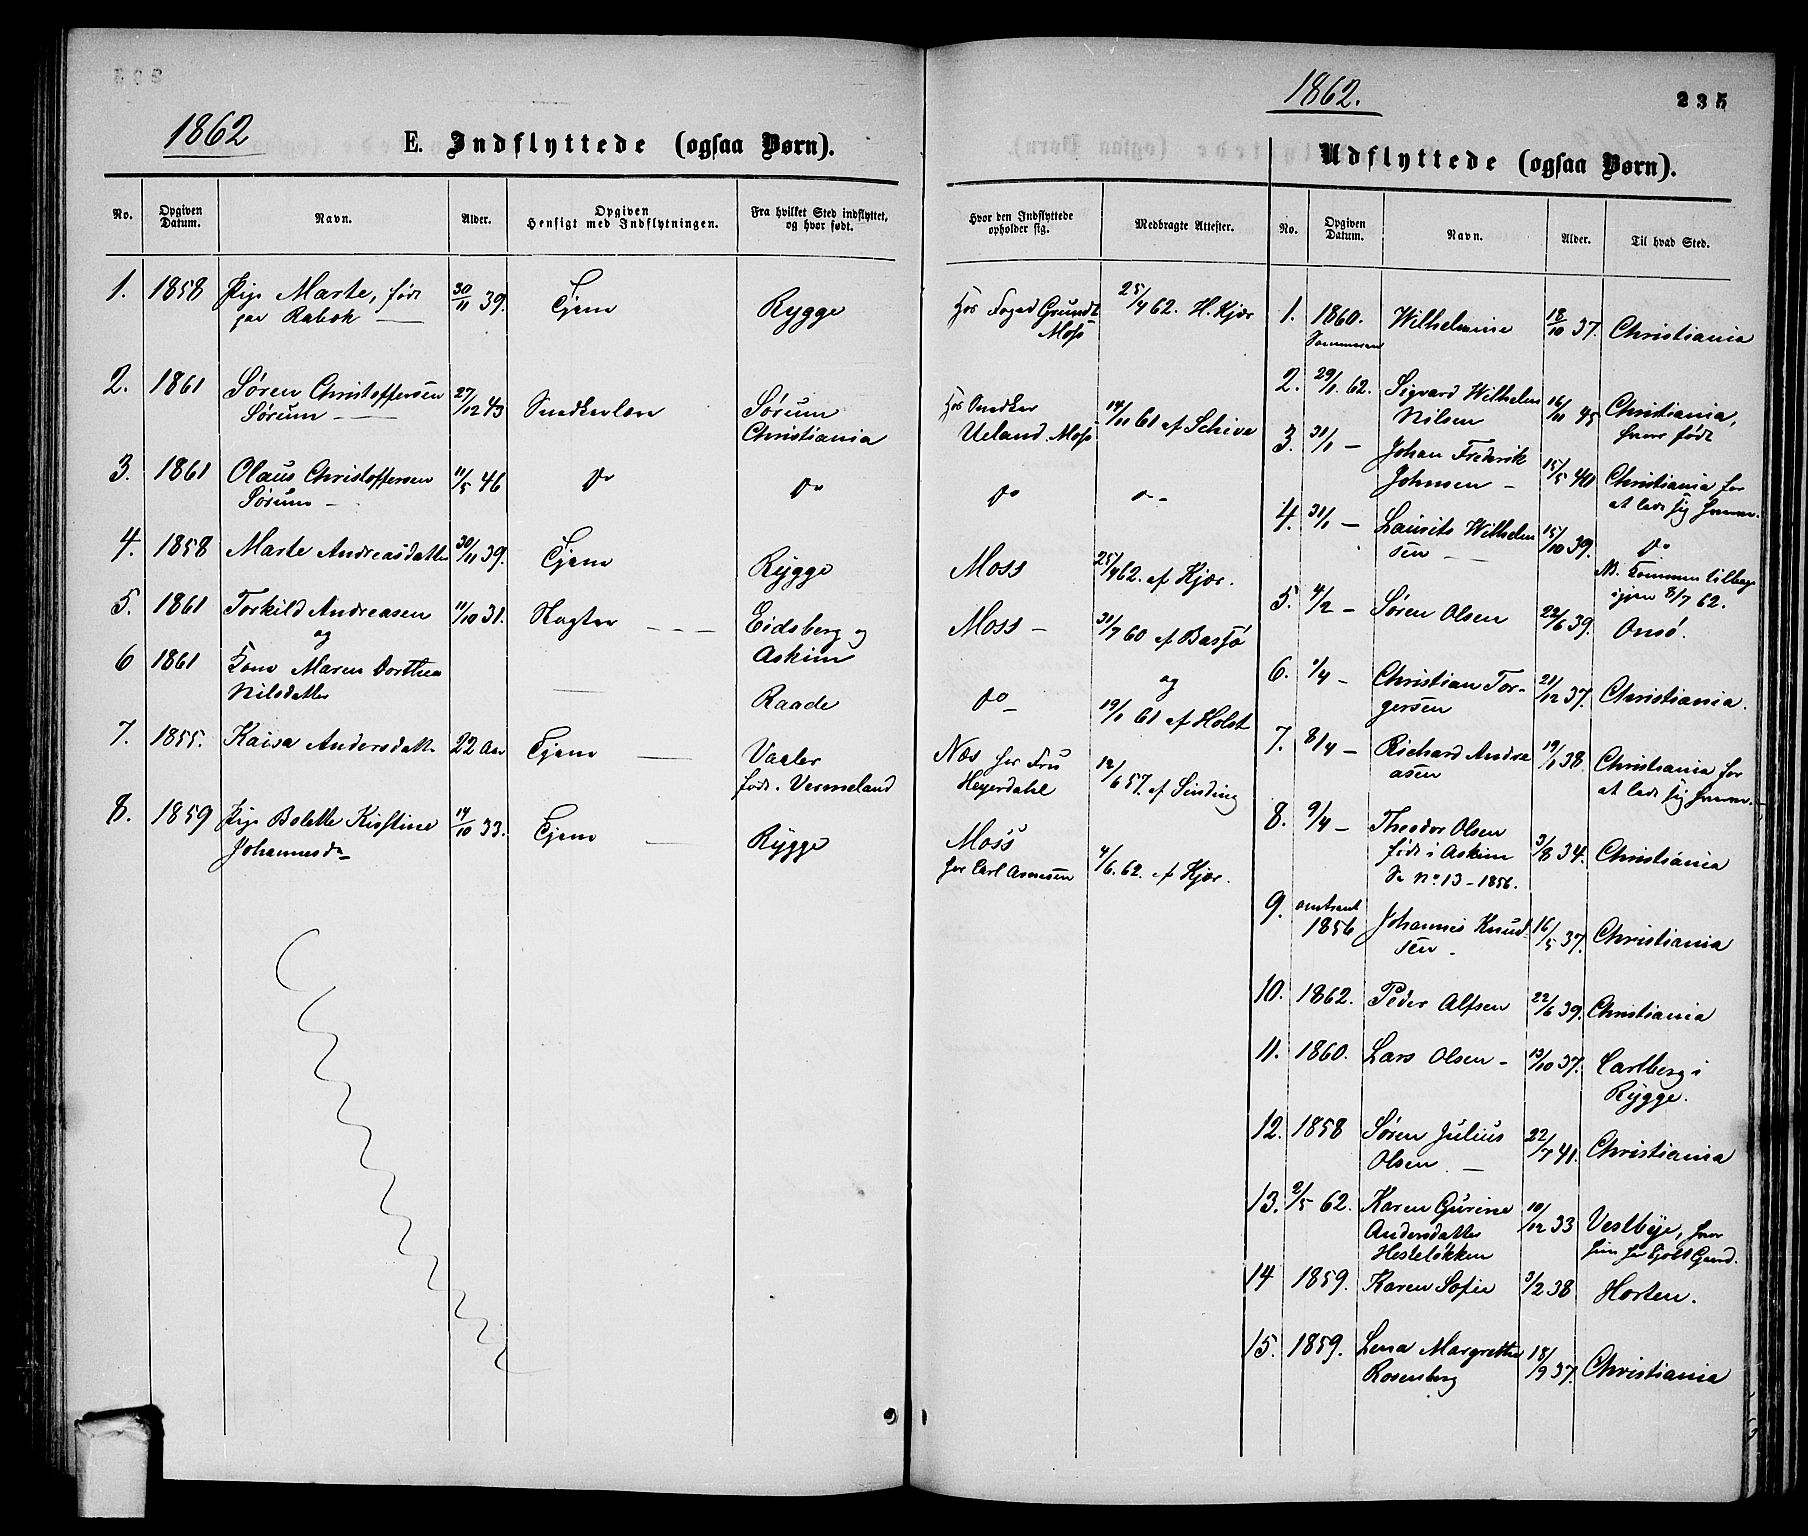 1862
E. Indflyttede (ogsaa Børn).
No.
Opgiven Datum.
Navn.
Alder.
Opgiven Hensigt med Indflytningen.
Fra hvilket Sted indflyttet, og hvor født.
Hvor den Indflyttede opholder sig.
Medbragte Attester.
1. 1858 Pige Marte, født 30/11 39. Tjene Rygge Hos Foged Grundt 25/4 62. H. Kjær
paa Rabok — Moss
2. 1861 Søren Christoffersen 27/12 43 Snedkerlære Sørum Hos Snedker 14/11 61 af Schive
Sørum — Christiania Ueland Moss
3. 1861 Olaus Christoffersen 11/5 46 do do do do
Sørum —
4. 1858 Marte Andreasdatter 30/11 39. Tjene Rygge Moss 25/4 62. af Kjær.
5. 1861 Torkild Andreasen 11/10 31. Slagter Eidsberg og Moss — 31/7 60 af Bassø
og Askim og
6 1861 Kone Maren Dorthea — Raade do 19/1 61 af Holst
Nilsdatter
7. 1855. Kaisa Andersdatt. 22 Aar Tjene Vaaler Næs hos Fru 12/6 57. af Sinding
født. Vermeland Heyerdahl
8. 1859 Pige Bolette Kirstine 14/10 33. Tjene Rygge Moss 4/6. 62. af Kjær.
Johannesdr hos Carl Asmesen
1862.
235
Udflyttede (ogsaa Børn).
No.
Opgiven Datum.
Navn.
Alder.
Til hvad Sted.
1. 1860. Wilhelmine 18/10 37. Christiania
Sommeren
2. 29/1. 62. Sigvard Wilhelm 16/11 45 Christiania,
Nilsen hvor født
3. 31/1 — Johan Frederik 15/5 40 Christiania for
Johnsen — at lade sig
4. 31/1 — Laurits Wilhelm 15/10 39. do
sen — NB. Kommen tilbage
igjen 8/7 62.
5. 4/2 — Søren Olsen 22/6 39. Onsø.
6. 1/4 — Christian Tor- 21/12 37. Christiania.
gersen
7. 8/4 — Richard Andre 19/1 38. Christiania for
asen at lade sig
8. 9/4 — Theodor Olsen 3/8 34. Christiania
født i Askim
Se No 13 – 1856.
9. omtrent Johannes Knud 16/5 37. Christiania
1856 sen —
10. 1862. Peder Alfsen 22/6 39. Christiania
11. 1860. Lars Olsen — 13/10 37. Carlberg i
Rygge.
12. 1858 Søren Julius 22/7 41. Christiania
Olsen —
13. 2/5 62. Karen Gurine 10/12 33 Vestbye, hvor
Andersdatter hun har Gaard.
Hesteløkken
14 1859. Karen Sofie 3/2 38 Horten.
15. 1859. Lena Margrethe 18/9 37. Christiania
Rosenberg